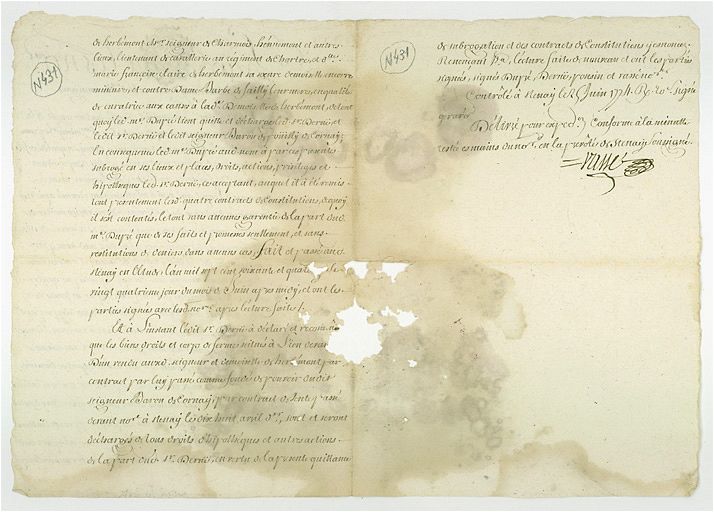 N 431
de herbémont Mre. seigneur de Charmois, hénnemont et autres
lieux, lieutenant de cavallerie au régiment de chartre, et dlle.
marie françoise claire de herbémont sa sœure demoiselle encorre
mineure, et contre Dame Barbe de sailly leur mere, en qualité
de curatrice aux causes à lad. Demoiselle de herbémont, de tout
quoy led. mr. Dupré tient quitte et décharge led. sr. Bernié et
led. seigneur Baron de pouilly de Cornay,
En conséquence led. mr. Dupré aud. nom a par ces présentes
subrogé en ses lieux et places, droits, actions, privileges et
hipothèques led. sr. Bernié, ce acceptant, auquel il a été remis
tout présentement les d. quatre contracts de Constitutions, de quoy
il s'est contenté, le tout sans aucunes garentie de la part dud.
mr. Dupré que de ses faits et promesses seullement, et sans
restitutions de deniers dans aucuns cas, fait et passé aud.
stenay en Etude l'an mil sept cent soixante et le
vingt quatrieme jour du mois de Juin apres midy, et ont les
parties signés avec les d. nores. apres lecture faite
Et à l'instant ledit sr. Bernié a déclaré et
que les biens droits et corps de fermes situés à
rendu auxd. seigneur et demoiselle de herbémont par
contract par luy passé comme fondé de pouvoir dudit
seigneur Baron de Cornay, par contract de vente passé
devant nore. à stenay le dix huit avril dr. sont et seront
déchargés de tous droits d'hipothèques et autres actions
de la part dud. sr. Bernié, en vertu de la présente quittance
N 431
de subrogation et des contracts de Constitutions y énoncés
Renonçant &a. lecture faite de nouveau et ont les parties
signés, signés Dupré, Bernié, et
Contrôlé à Stenay le 25 Juin 1774. signé
girard
Délivré pour expedon. Conforme à la minutte
restée es mains du nore. en la prévôté de Stenay soussigné